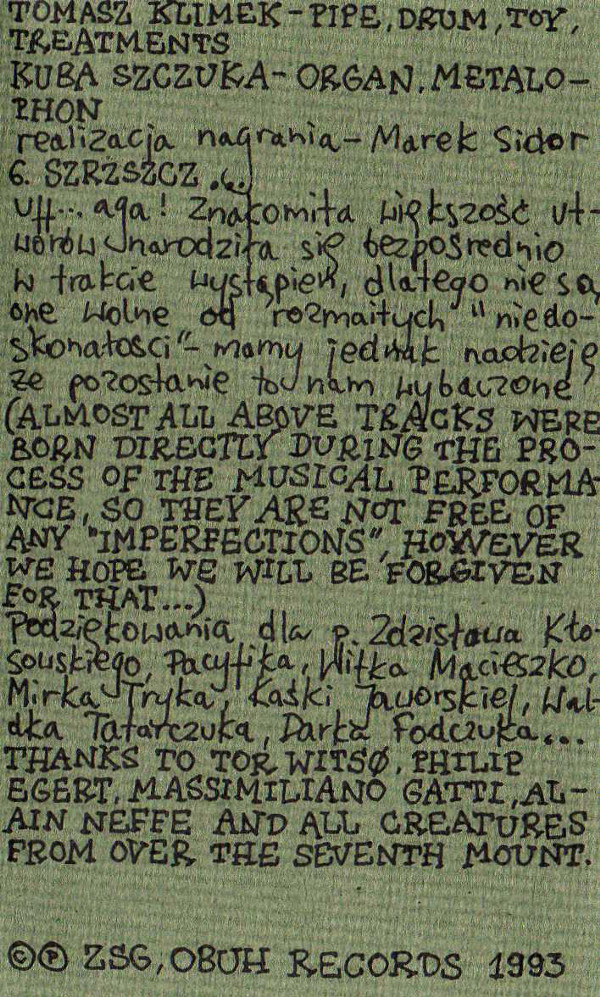 TOMASZ KLIMEK-PIPE, DRUM, TOY,
TREATMENTS
KUBA SZCZUKA- ORGAN, METALO-
PHON
realizacja nagrania-Marek Sidor
6. SZRZSZCZ.(.)
Uff... aga! Znakomita większość ut-
worów narodziła się bezpośrednio
w trakcie wystąpień, dlatego nie są
one wolne od rozmaitych "niedo-
skonałości"- mamy jednak nadzieję
że pozostanie to nam wybaczone
(ALMOST ALL ABOVE TRACKS WERE
BORN DIRECTLY DURING THE PRO-
CESS OF THE MUSICAL PERFORMA-
NCE, SO THEY ARE NOT FREE OF
ANY "IMPERFECTIONS", HOWEVER
WE HOPE WE WILL BE FORGIVEN
FOR THAT...)
Podziękowania dla p. Zdzisława Kło-
souskiego, Pacyfika, Witka Macieszko,
Mirka Tryka, Kaśki Jaworskiej, Wal-
dka Tatarczuka, Darka Fodczuka...
THANKS TO TOR WITSØ, PHILIP
EGERT, MASSIMILIANO GATTI, AL-
AIN NEFFE AND ALL CREATURES
FROM OVER THE SEVENTH MOUNT.
©℗ ZSG, OBUH RECORDS 1993